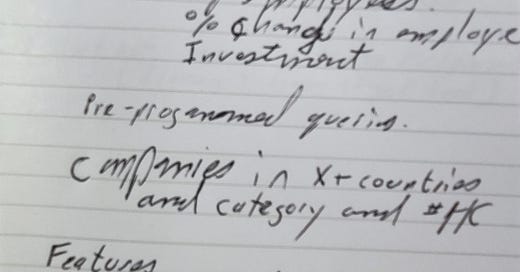 employees.
% change in employe
Investment
Pre-programmed queries.
Companies in X+ countries
and category and #HC
Features